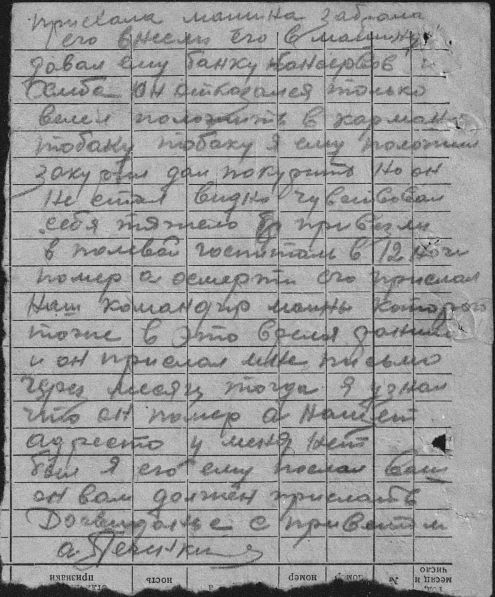 приехала машина забрала
его внесли его в машину
давал ему банку консервов и
хлеба он отказался только
велел положить в карман
табаку табаку я ему положил
закурил дал покурить но он
не стал видно чувствовал
себя тяжело привезли
в полевой госпиталь в 12 ночи
помер а о смерти его прислал
наш командир роты которого
тоже в это время ранило
и он прислал мне письмо
через месяц тогда я узнал
что он помер а
адресто у меня нет
был я его ему послал ваш
он вам должен прислать
Досвиданье с приветом
а Печинкин
признаки
ность
номер
номер
№
месяц и
число